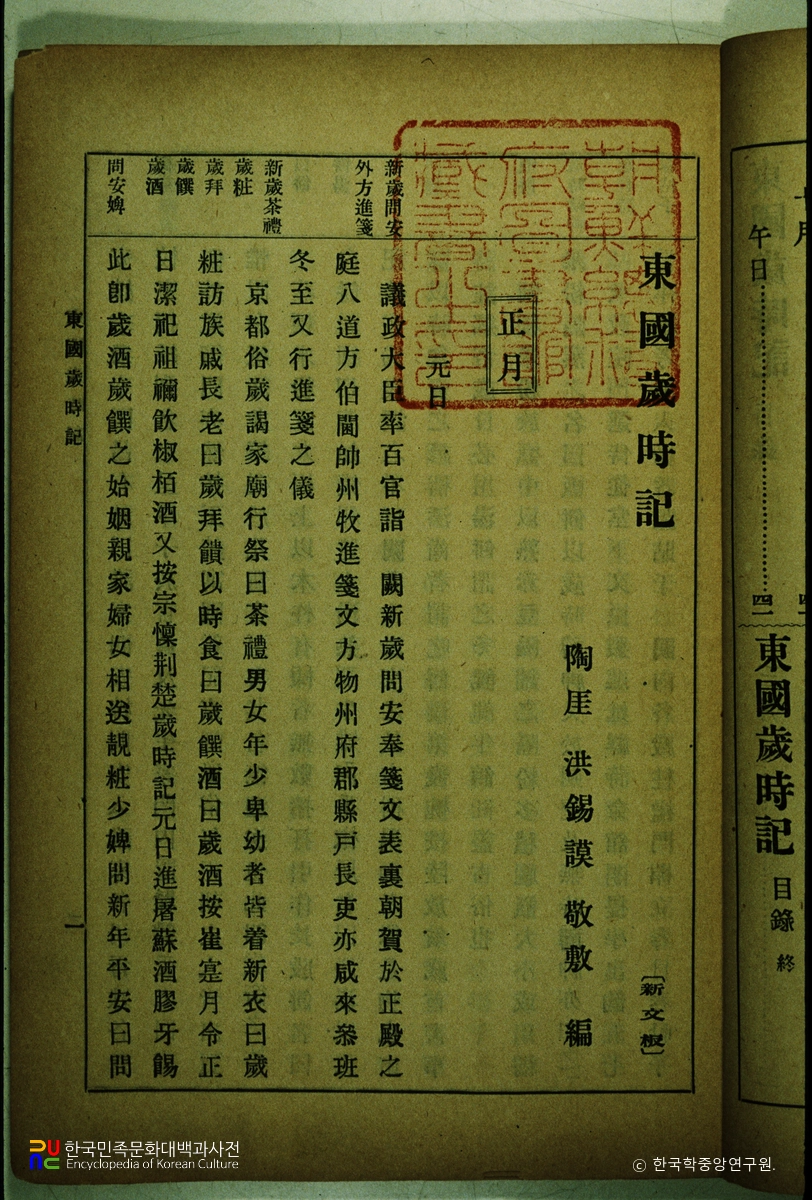 午日 四一
東國歲時記 目錄 終
朝鮮總督
府圖書館
藏書之印
東國歲時記 〔新文板〕
陶厓 洪錫謨 敬敷 編
正月
元日
新歲問安
外方進箋
議政大臣率百官詣 闕新歲問安奉箋文表裏朝賀於正殿之
庭八道方伯閫帥州牧進箋文方物州府郡縣戶長吏亦咸來叅班
冬至又行進箋之儀
新歲茶禮
歲粧
歲拜
歲饌
歲酒
京都俗歲謁家廟行祭曰茶禮男女年少卑幼者皆着新衣曰歲
粧訪族戚長老曰歲拜饋以時食曰歲饌酒曰歲酒按崔寔月令正
日潔祀祖禰飮椒栢酒又按宗懍荆楚歲時記元日進屠蘇酒膠牙餳
問安婢
此卽歲酒歲饌之始姻親家婦女相送靚粧少婢問新年平安曰問
東國歲時記 一
한국민족문화대백과사전
Encyclopedia of Korean Culture
© 한국학중앙연구원.